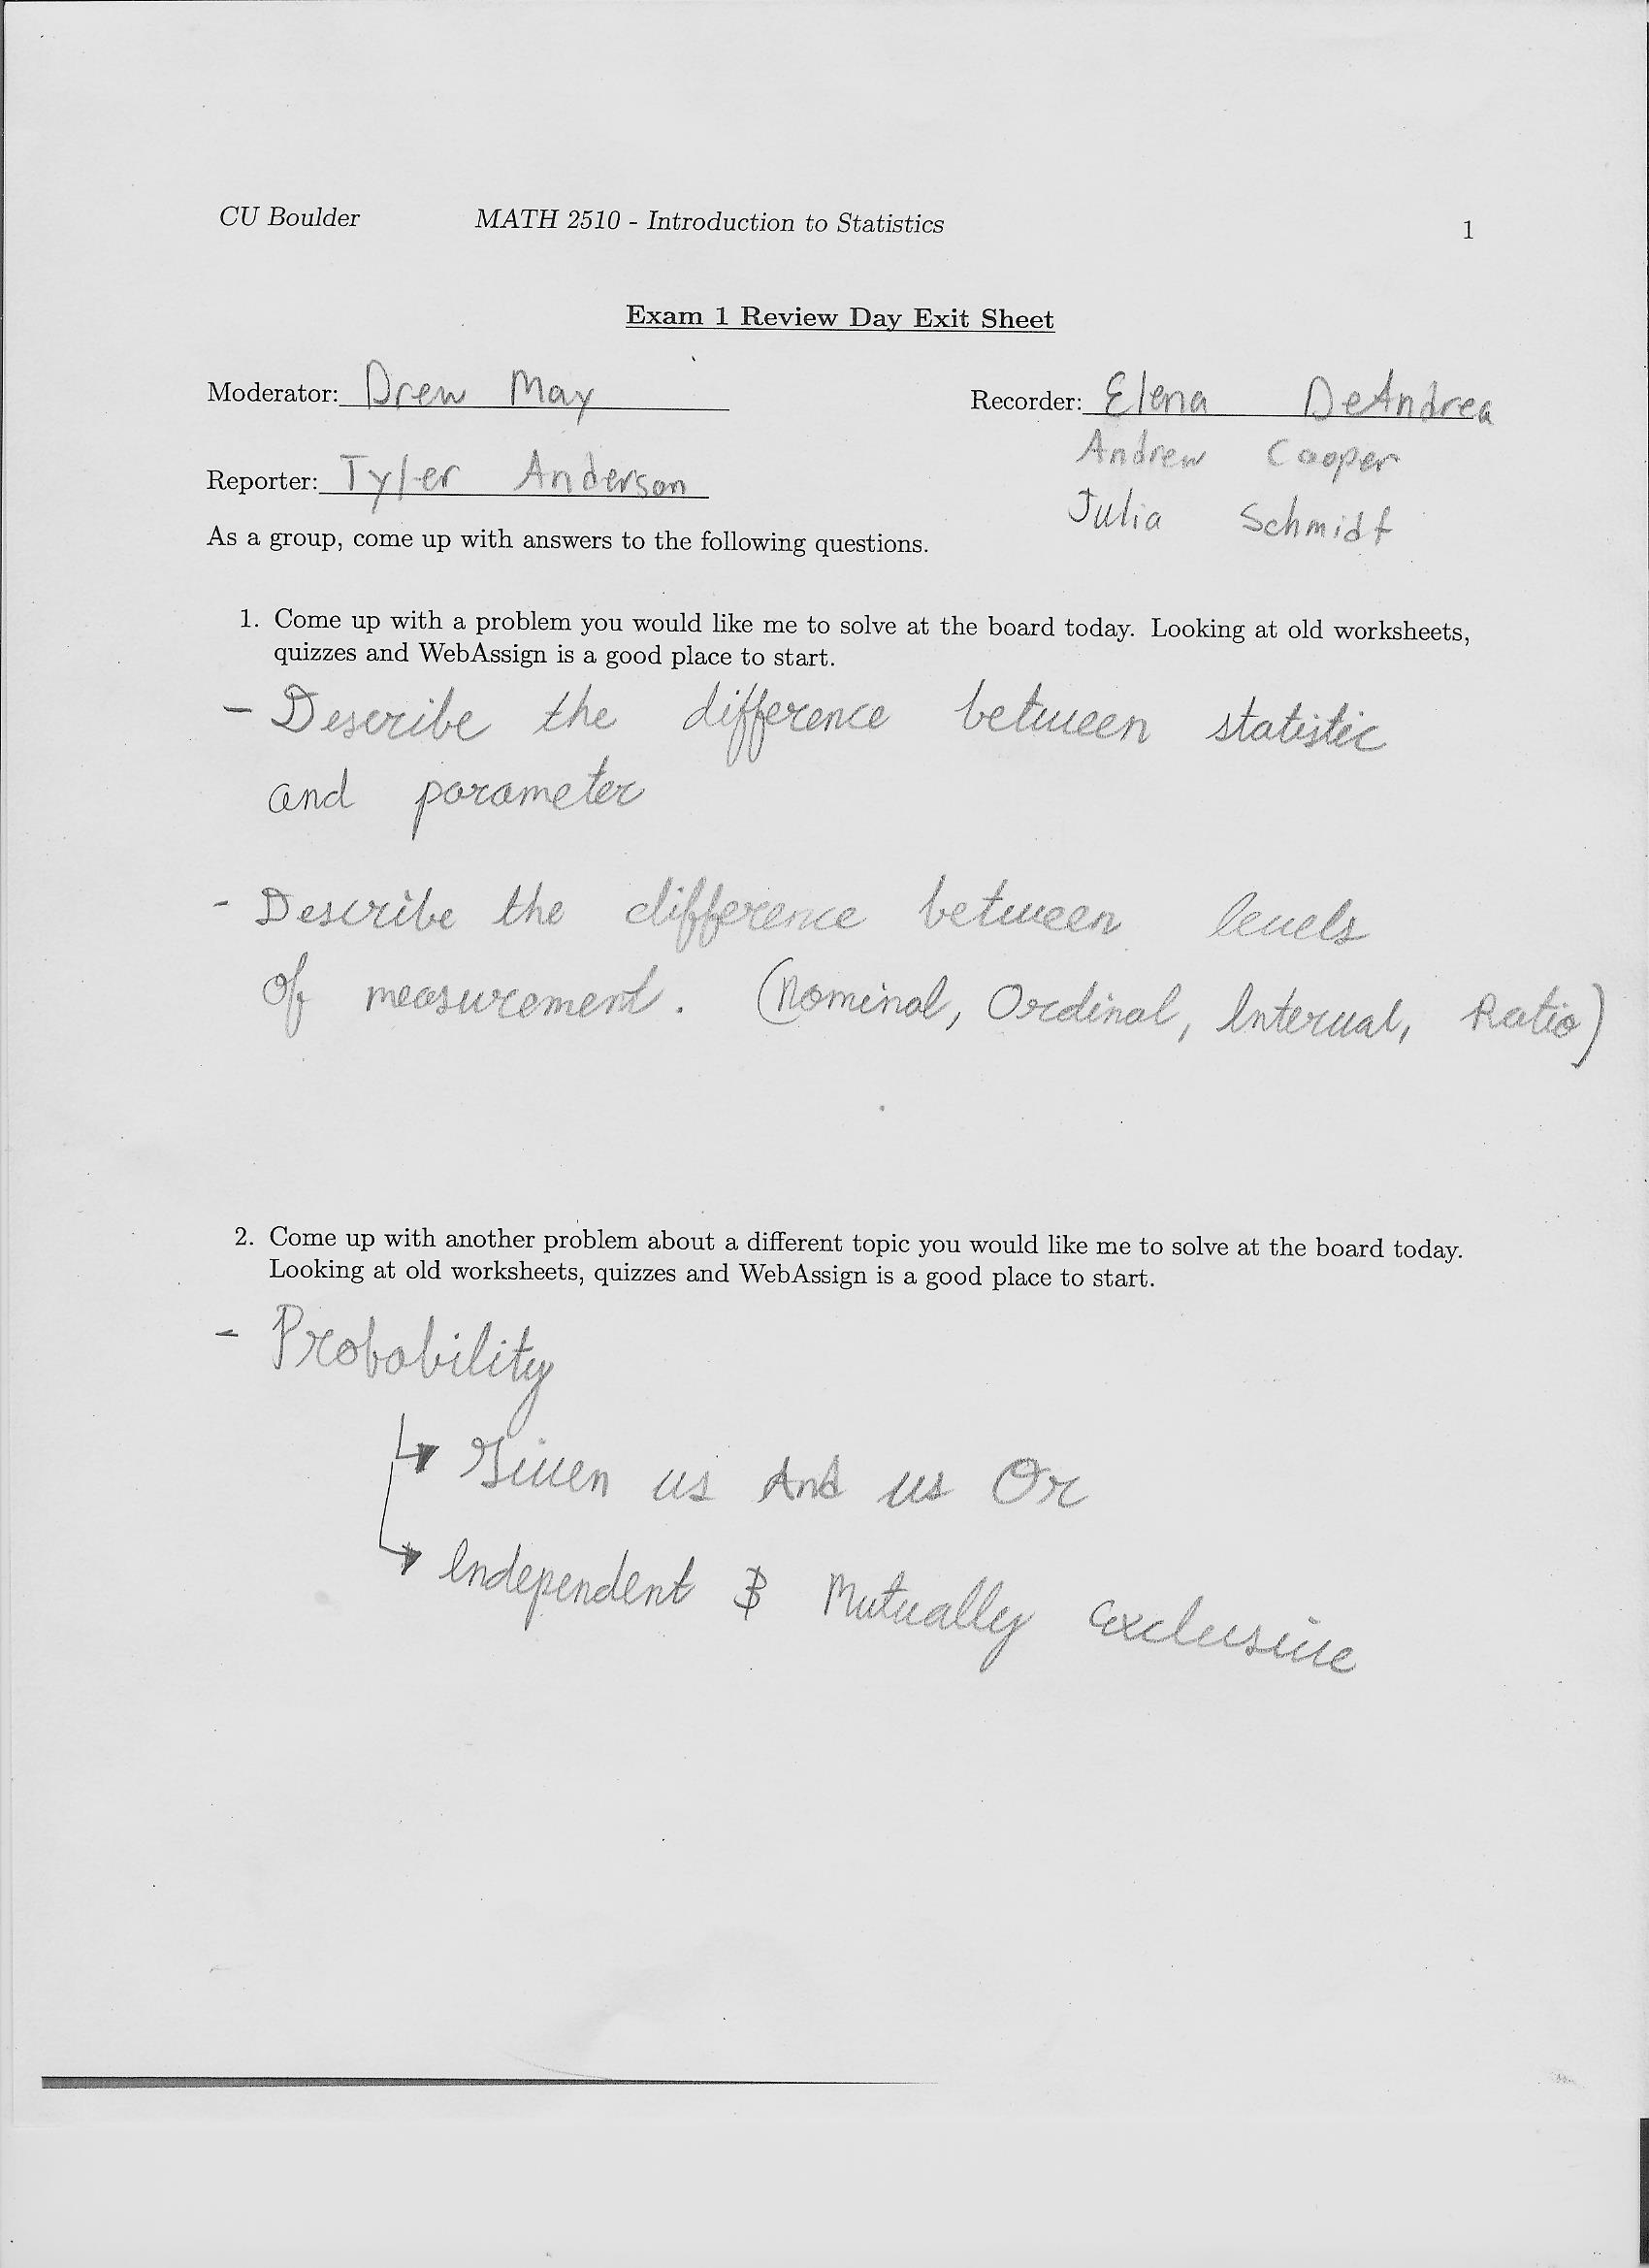 CU Boulder MATH 2510 - Introduction to Statistics 1
Exam 1 Review Day Exit Sheet
Moderator: Drew May Recorder: Elena DeAndrea
Andrew Cooper
Reporter: Tyler Anderson
Julia Schmidt
As a group, come up with answers to the following questions.
1. Come up with a problem you would like me to solve at the board today. Looking at old worksheets,
quizzes and WebAssign is a good place to start.
- Describe the difference between statistic
and parameter
- Describe the difference between levels
of measurement. (Nominal, Ordinal, Interval, Ratio)
2. Come up with another problem about a different topic you would like me to solve at the board today.
Looking at old worksheets, quizzes and WebAssign is a good place to start.
- Probability
↳ Given vs And vs Or
↳ Independent & Mutually exclusive